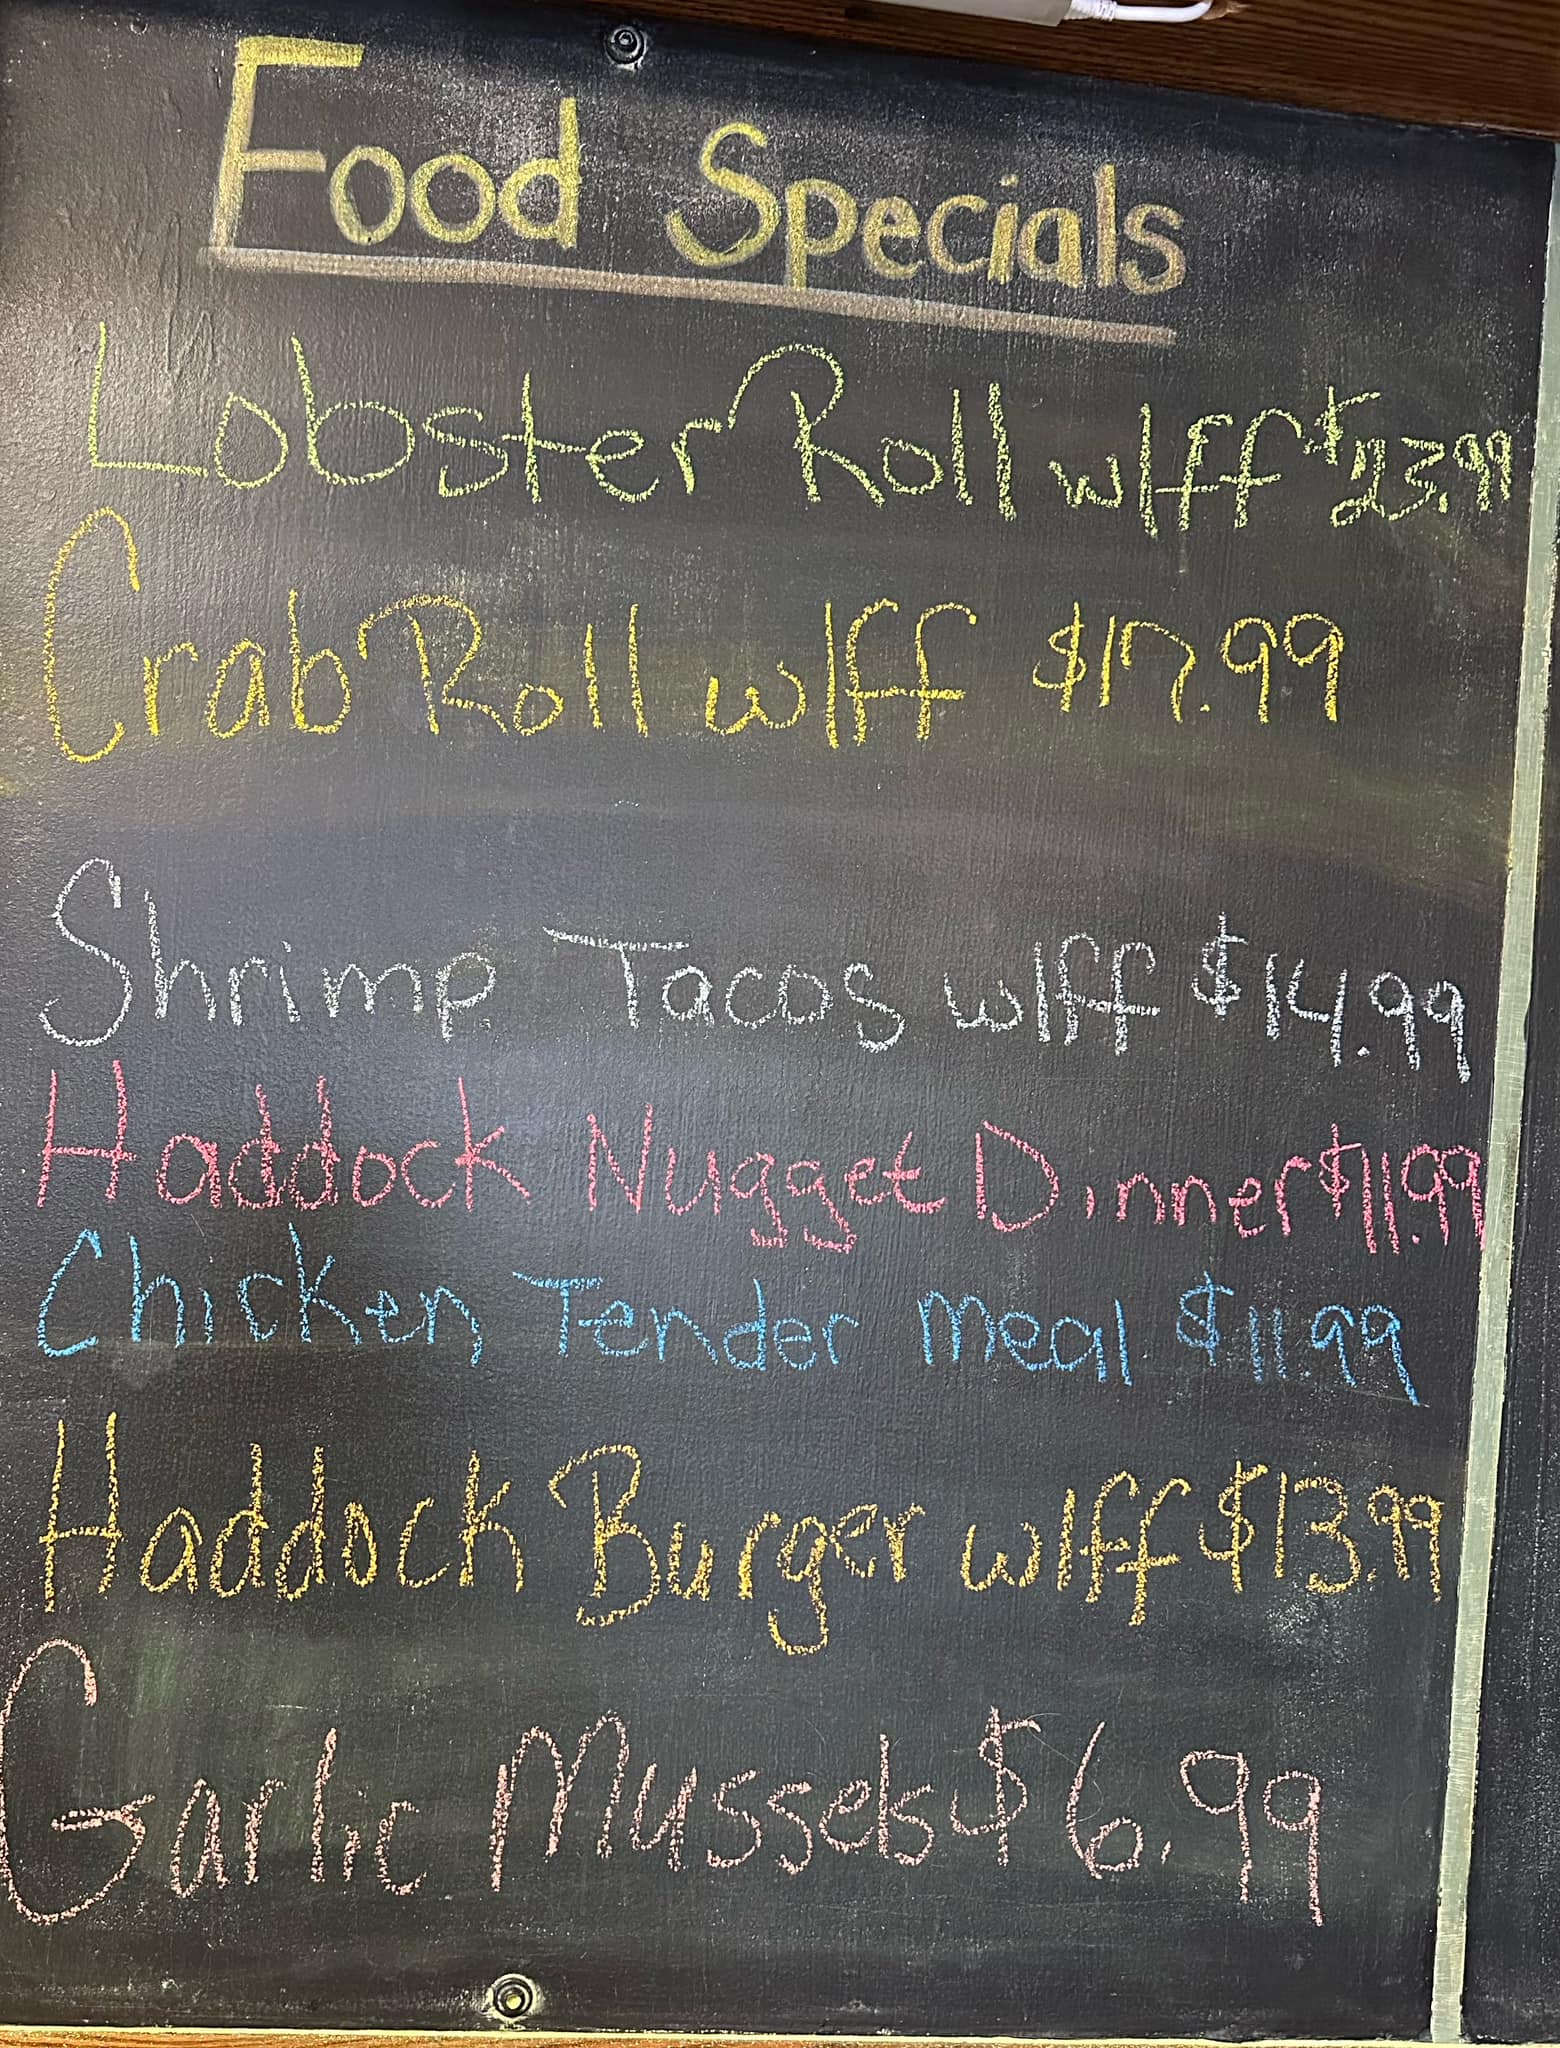 Food Specials
Lobster Roll w/ff $23.99
Crab Roll w/ff $17.99
Shrimp Tacos w/ff $14.99
Haddock Nugget Dinner $11.99
Chicken Tender meal $11.99
Haddock Burger w/ff $13.99
Garlic Mussels $6.99